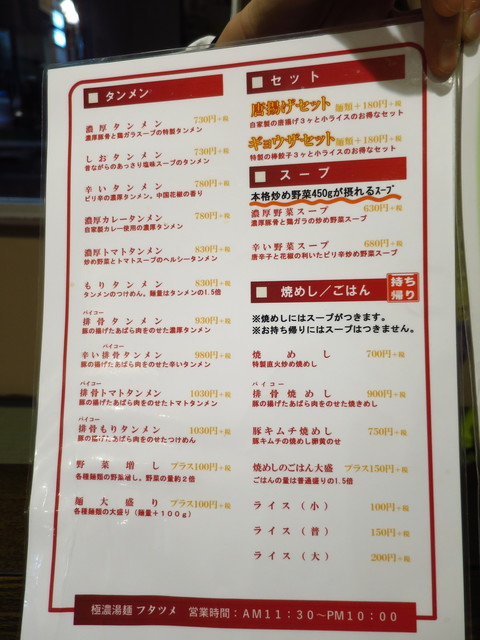 ■ タンメン
濃厚タンメン 730円+税
濃厚豚骨と鶏ガラスープの特製タンメン
しおタンメン 730円+税
昔ながらのあっさり塩味スープのタンメン
辛いタンメン 780円+税
ピリ辛の濃厚タンメン、中国花椒の香り
濃厚カレータンメン 780円+税
自家製カレー使用の濃厚タンメン
濃厚トマトタンメン 830円+税
炒め野菜とトマトスープのヘルシータンメン
もりタンメン 830円+税
タンメンのつけめん。麺量はタンメンの1.5倍
パイコー
排骨タンメン 930円+税
豚の揚げたあばら肉をのせた濃厚タンメン
パイコー
辛い排骨タンメン 980円+税
豚の揚げたあばら肉をのせた辛いタンメン
パイコー
排骨トマトタンメン 1030円+税
豚の揚げたあばら肉をのせたトマトタンメン
パイコー
排骨もりタンメン 1030円+税
豚の揚げたあばら肉をのせたつけめん
野菜増し プラス100円+税
各種麺類の野菜増し。野菜の量約2倍
麺大盛り プラス100円+税
各種麺類の大盛り（麺量＋100g）
■ セット
唐揚げ・セット 麺類＋180円+税
自家製の唐揚げ3ヶと小ライスのお得なセット
ギョウザ・セット 麺類＋180円+税
特製の棒餃子3ヶと小ライスのお得なセット
■ スープ
本格炒め野菜450gが摂れるｽｰﾌﾟ
濃厚野菜スープ 630円+税
濃厚豚骨と鶏ガラの炒め野菜スープ
辛い野菜スープ 680円+税
唐辛子と花椒の利いたピリ辛炒め野菜スープ
■ 焼めし／ごはん 持ち帰り
※焼めしにはスープがつきます。
※お持ち帰りにはスープはつきません。
焼めし 700円+税
特製直火炒め焼めし
パイコー
排骨焼めし 900円+税
豚の揚げたあばら肉をのせた焼きめし
豚キムチ焼めし 750円+税
豚キムチの焼めし卵黄のせ
焼めしのごはん大盛 プラス150円+税
ごはんの量は普通盛りの1.5倍
ライス（小） 100円+税
ライス（普） 150円+税
ライス（大） 200円+税
極濃湯麺 フタツメ 営業時間：AM11：30～PM10：00